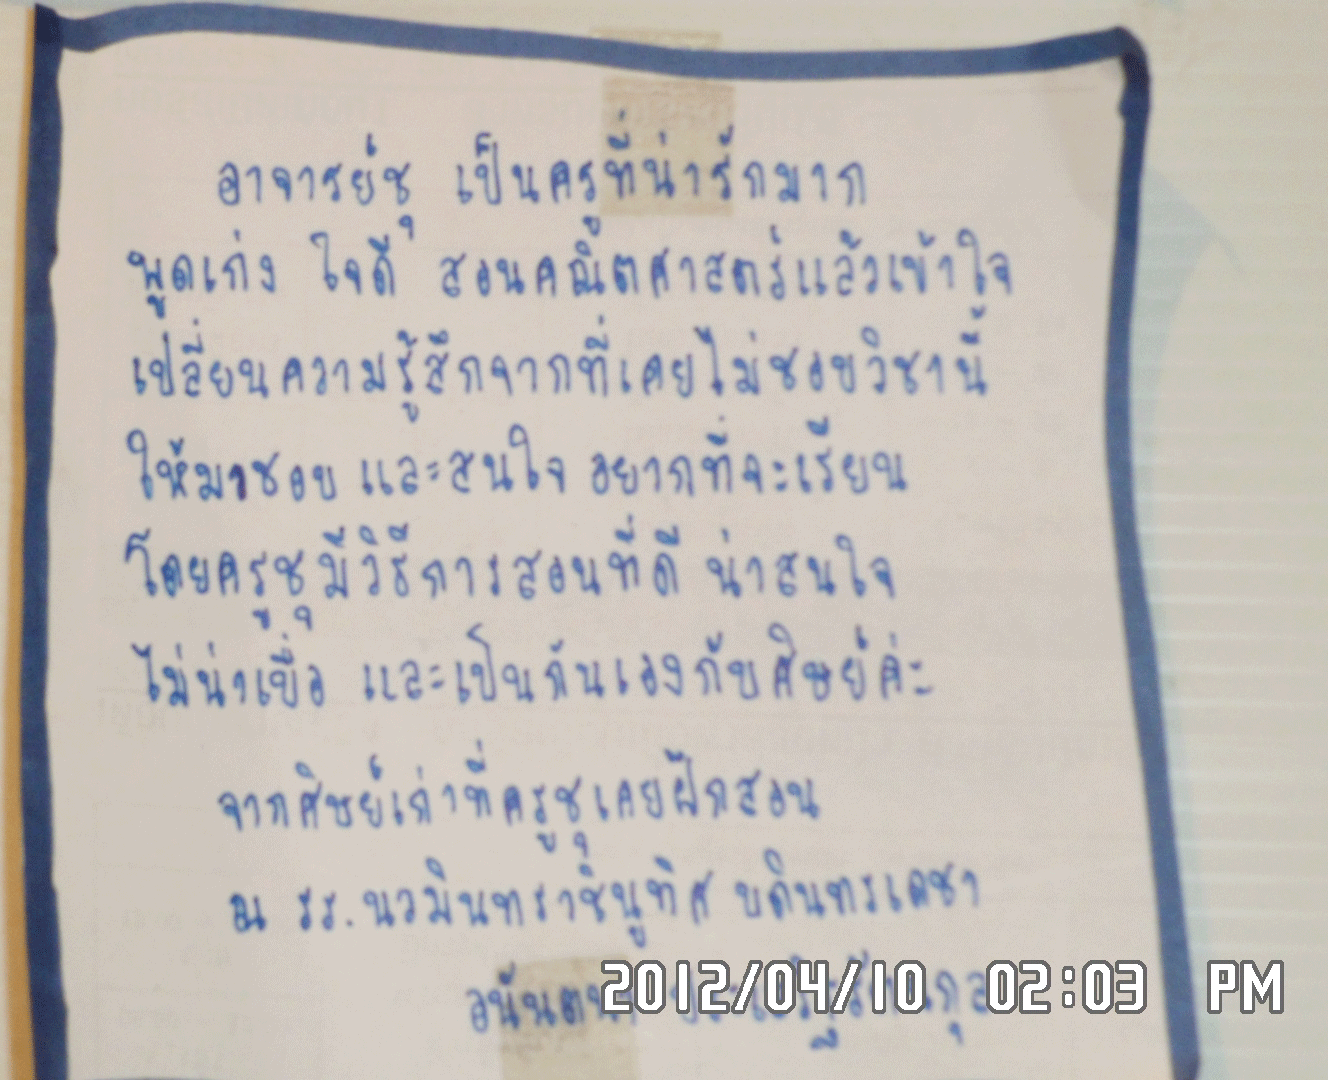 อาจารย์ชุ เป็นครูที่น่ารักมาก
พูดเก่ง ใจดี สอนคณิตศาสตร์แล้วเข้าใจ
เปลี่ยนความรู้สึกจากที่เคยไม่ชอบวิชานี้
ให้มาชอบ และสนใจ อยากที่จะเรียน
โดยครูชุมีวิธีการสอนที่ดี น่าสนใจ
ไม่น่าเบื่อ และเป็นกันเองกับศิษย์ค่ะ
จากศิษย์เก่าที่ครูชุเคยฝึกสอน
ณ รร.นวมินทราชินูทิศ บดินทรเดชา
2012/04/10 02:03 PM